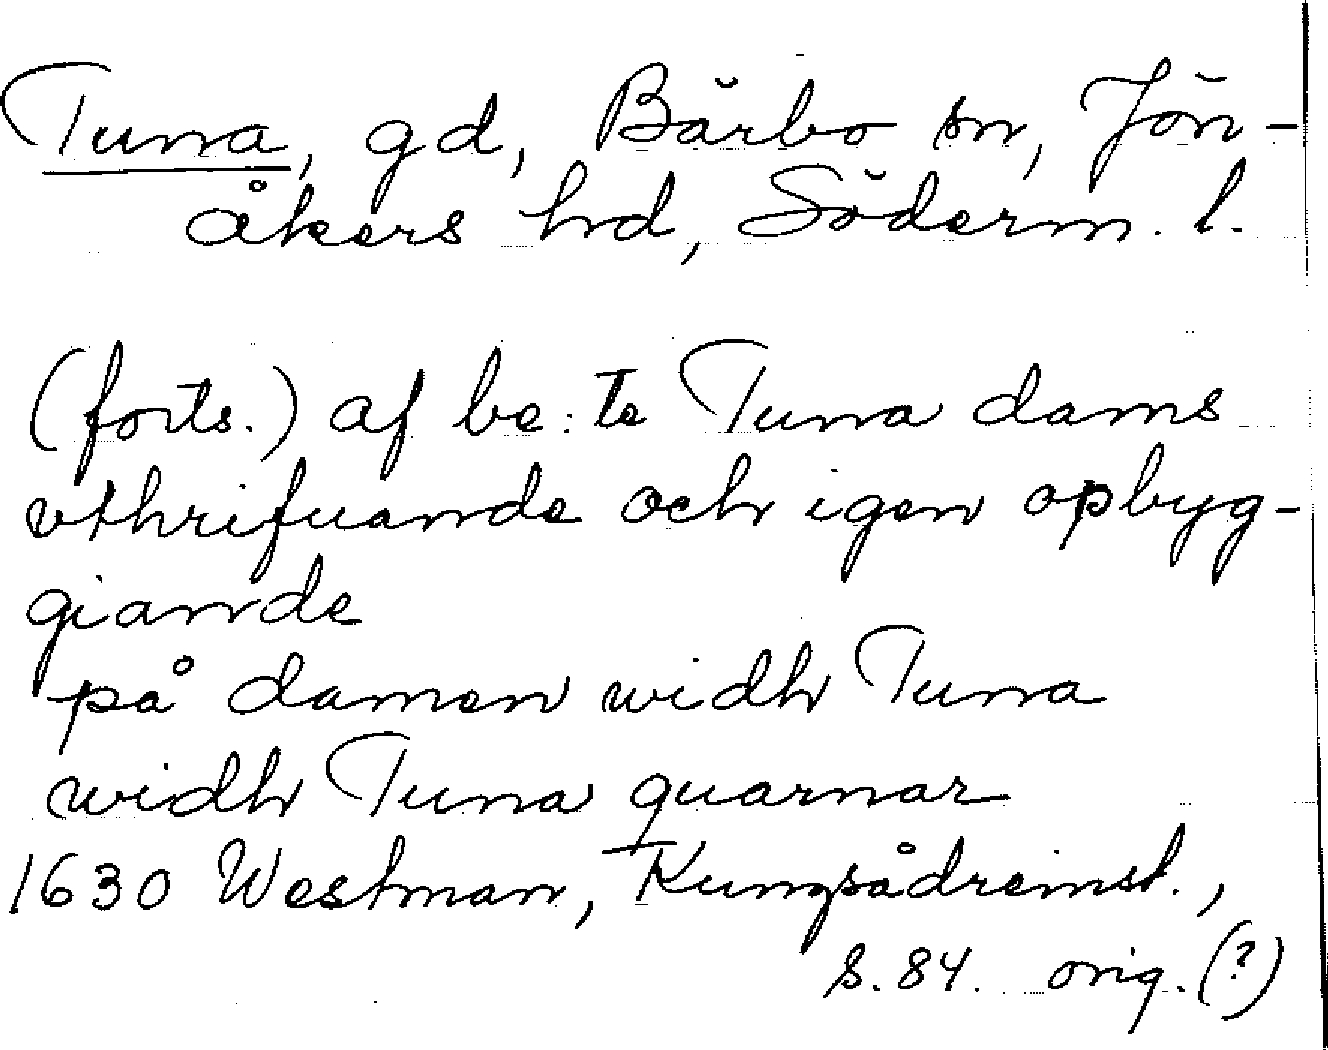 Tuna, gd, Bärbo sn, Jön-
åkers hd, Söderm. l.
(forts.) af be:te Tuna dams
vthrifuande och igen opbyg-
giande
på damen widh Tuna
widh Tuna quarnar
1630 Westman, Kungsådreinst.,
s. 84. orig. (?)